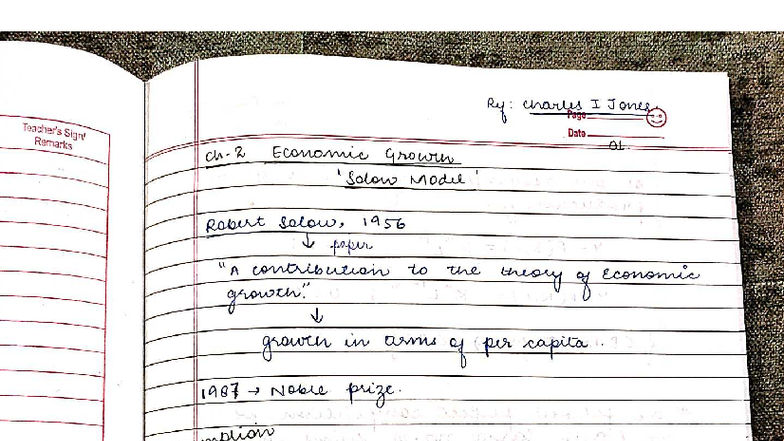 Teacher's Sign/
Remarks
By: Charles I Jones
Page
Date
01
ch-2 Economic Growth
'Solow Model'
Robert Solow, 1956
↓ paper
"A contribution to the theory of Economic
growth."
↓
growth in terms of per capita.
1987 → Noble prize.